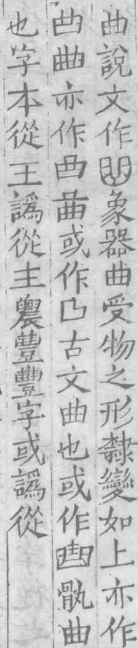 曲說文作𠚖象器曲受物之形隸變如上亦作
凸曲亦作𠚖𦱔或作凵古文曲也或作𠚖骩曲
也字本從王譌從主農豐豊字或譌從